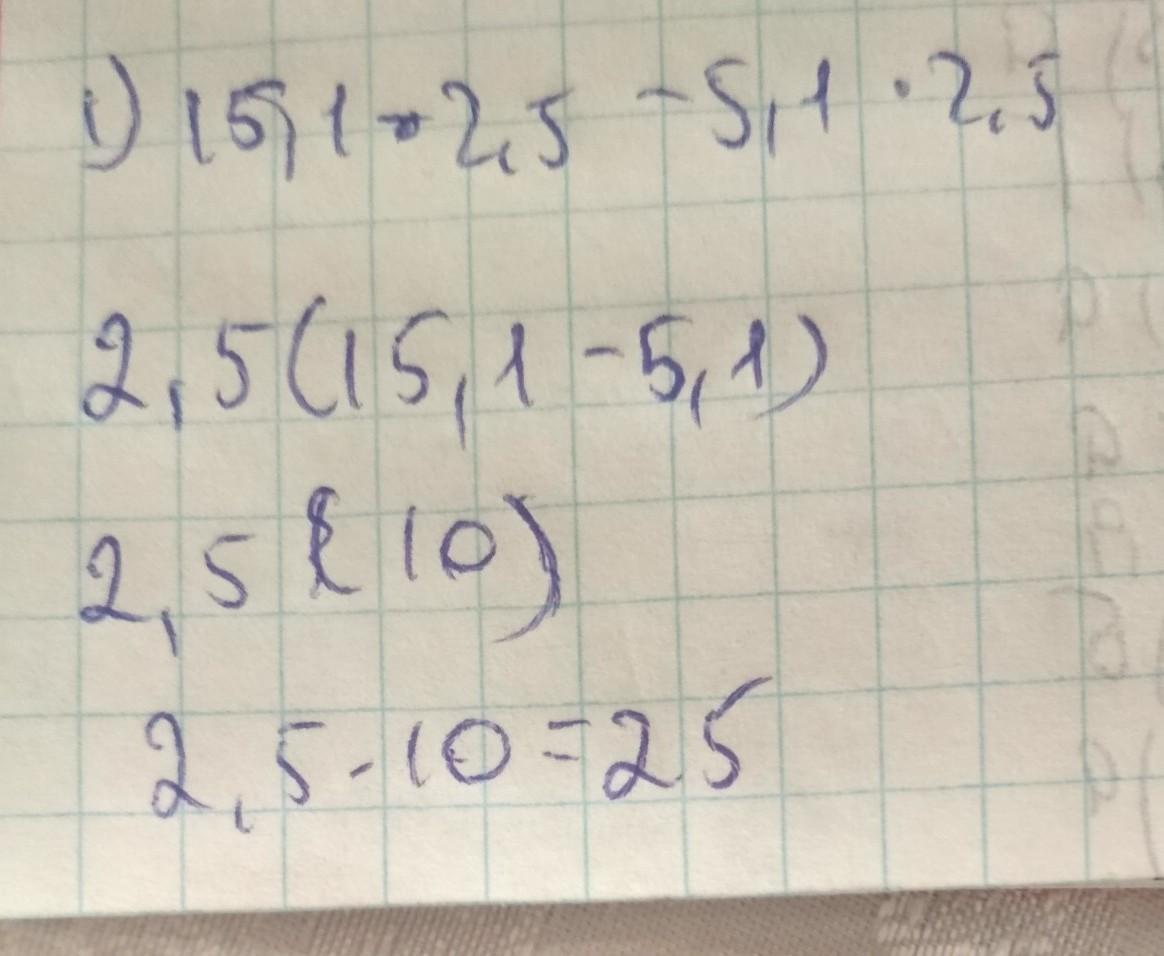 1) 15,1 · 2,5 - 5,1 · 2,5
2,5(15,1 - 5,1)
2,5(10)
2,5 · 10 = 25